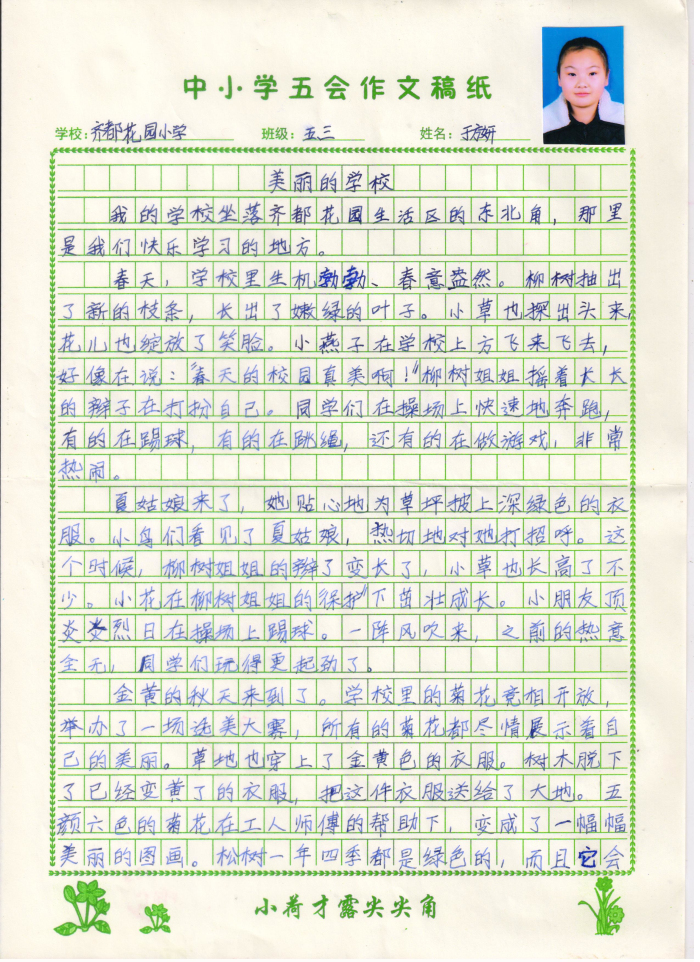 中小学五会作文稿纸
学校:齐都花园小学 班级:五三 姓名:于方妍
美丽的学校
我的学校坐落齐都花园生活区的东北角，那里
是我们快乐学习的地方。
春天，学校里生机勃勃、春意盎然。柳树抽出
了新的枝条，长出了嫩绿的叶子。小草也探出头来，
花儿也绽放了笑脸。小燕子在学校上方飞来飞去，
好像在说：“春天的校园真美啊！”柳树姐姐摇着长长
的辫子在打扮自己。同学们在操场上快速地奔跑，
有的在踢球，有的在跳绳，还有的在做游戏，非常
热闹。
夏姑娘来了，她贴心地为草坪披上深绿色的衣
服。小鸟们看见了夏姑娘，热切地对她打招呼。这
个时候，柳树姐姐的辫子变长了，小草也长高了不
少。小花在柳树姐姐的“保护”下茁壮成长。小朋友顶
炎炎烈日在操场上踢球。一阵风吹来，之前的热意
全无，同学们玩得更起劲了。
金黄的秋天来到了。学校里的菊花竞相开放，
举办了一场选美大赛，所有的菊花都尽情展示着自
己的美丽。草地也穿上了金黄色的衣服。树木脱下
了已经变黄了的衣服，把这件衣服送给了大地。五
颜六色的菊花在工人师傅的帮助下，变成了一幅幅
美丽的图画。松树一年四季都是绿色的，而且它会
小荷才露尖尖角